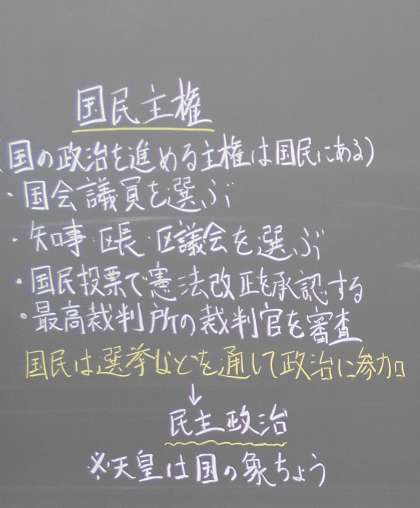 国民主権
(国の政治を進める主権は国民にある)
・国会議員を選ぶ
・知事・区長・区議会を選ぶ
・国民投票で憲法改正を承認する
・最高裁判所の裁判官を審査
国民は選挙などを通して政治に参加
↓
民主政治
※天皇は国の象ちょう